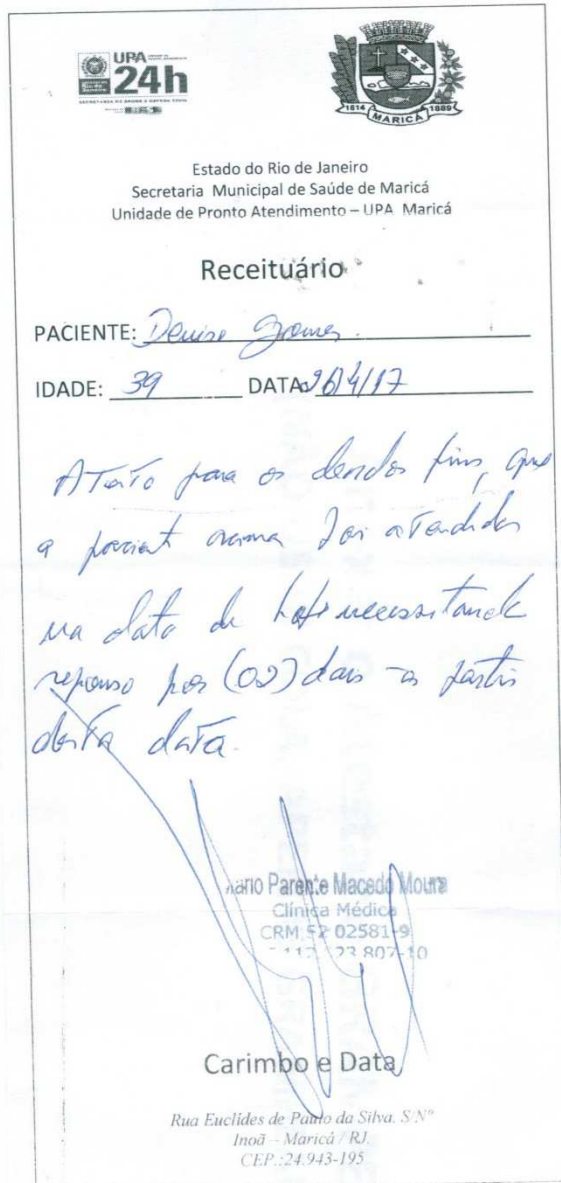 UPA
24h
SECRETARIA DE SAÚDE E DEFESA CIVIL
1814 MARICÁ 1889
Estado do Rio de Janeiro
Secretaria Municipal de Saúde de Maricá
Unidade de Pronto Atendimento – UPA Maricá
Receituário
PACIENTE: Denise Gomes.
IDADE: 39 DATA: 26/4/17
Atesto para os devidos fins, que
a pacient acima foi atendida
na data de hoje necessitand
repouso por (02) dias a partir
desta data.
Parente Macedo Moura
Clínica Médica
CRM 52 02581-9
23 807-10
Carimbo e Data
Rua Euclides de Paulo da Silva. S/Nº
Inoã – Maricá / RJ.
CEP.:24.943-195